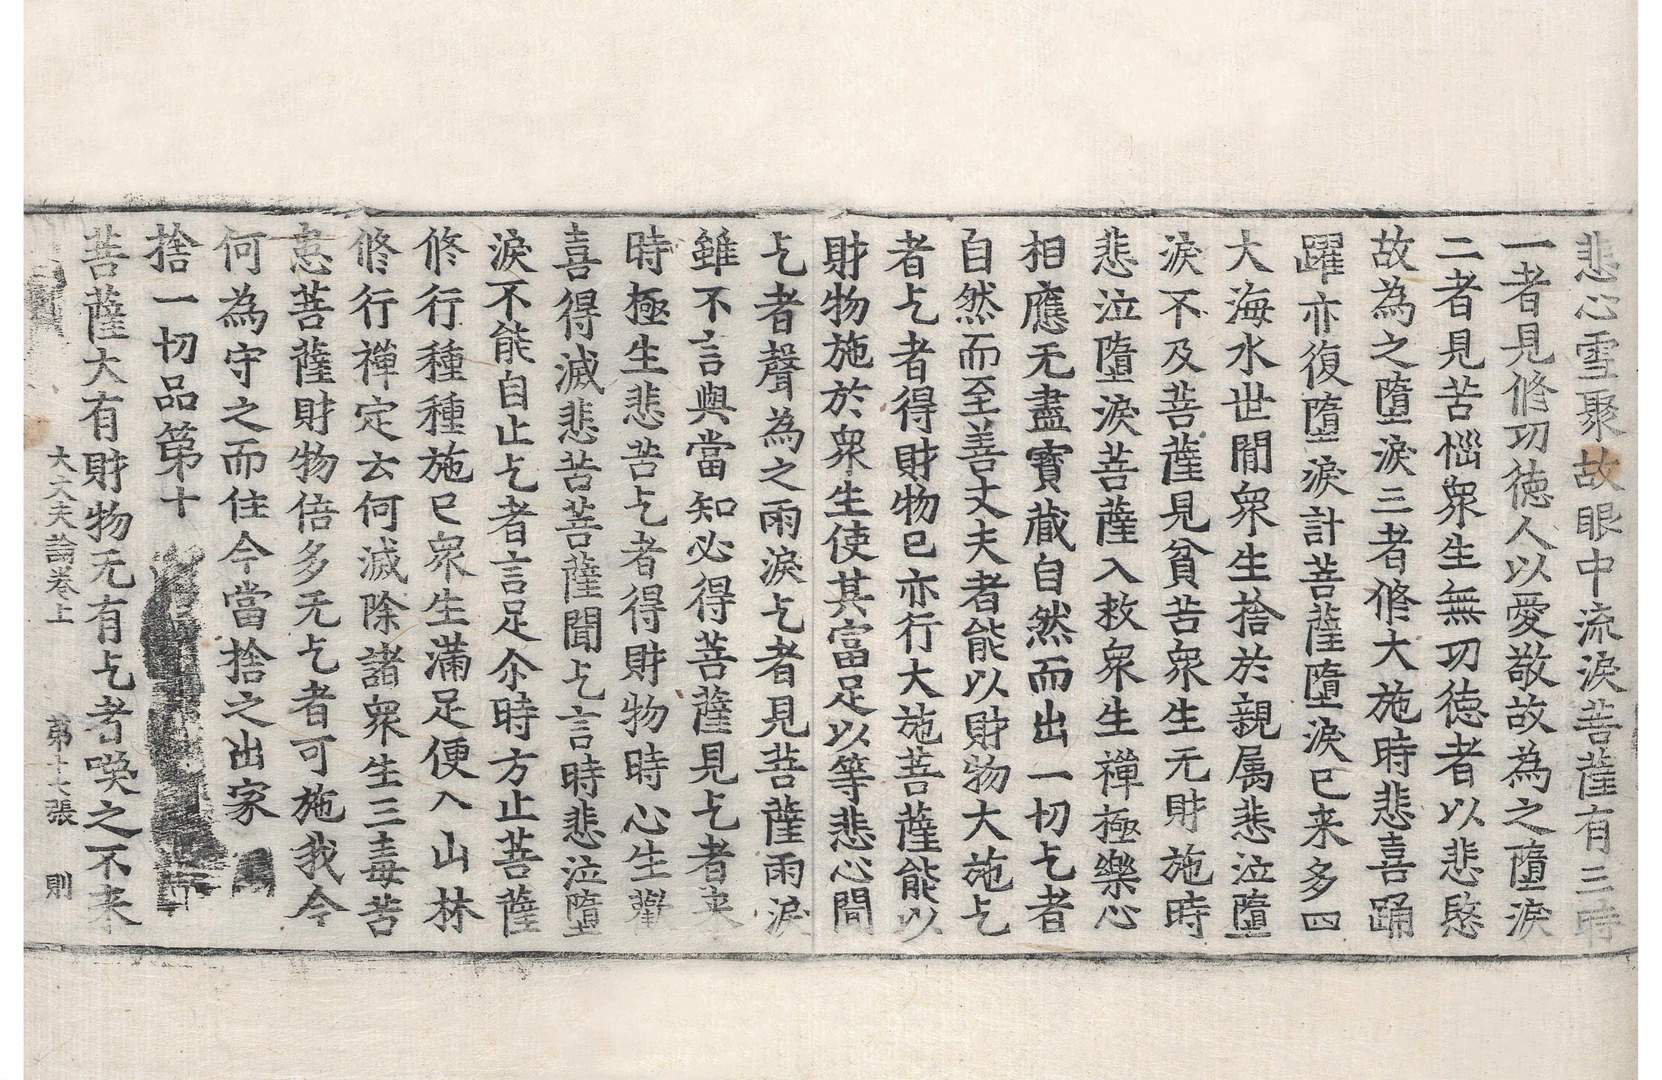 悲心雪聚故眼中流淚菩薩有三時
一者見修功徳人以愛敬故為之墮淚
二者見苦惱衆生無功徳者以悲愍
故為之墮淚三者修大施時悲喜踊
躍亦復墮淚計菩薩墮淚已来多四
大海水世間衆生捨於親属悲泣墮
淚不及菩薩見貧苦衆生无財施時
悲泣墮淚菩薩入救衆生禪極樂心
相應无盡寶蔵自然而出一切乞者
自然而至善丈夫者能以財物大施乞
者乞者得財物已亦行大施菩薩能以
財物施於衆生使其富足以等悲心閒
乞者聲為之雨淚乞者見菩薩雨淚
雖不言與當知必得菩薩見乞者来
時極生悲苦乞者得財物時心生歡
喜得滅悲苦菩薩聞乞言時悲泣墮
淚不能自止乞者言足尒時方止菩薩
修行種種施已衆生滿足便入山林
修行禪定云何滅除諸衆生三毒苦
恚菩薩財物倍多无乞者可施我今
何為守之而住今當捨之出家
捨一切品第十
菩薩大有財物无有乞者喚之不来
大丈夫論卷上 第十七張 則